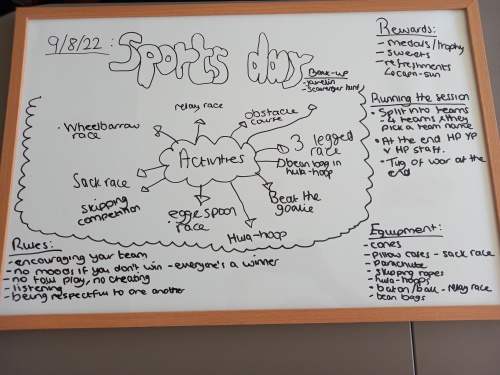 9/8/22: Sports day
Back-up
- javelin
- Scavenger hunt
Rewards:
- medals/trophy
- sweets
- refreshments
↳ capri-sun
Activities
relay race
obstacle
course
3 legged
race
bean bag in
hula-hoop
Beat the
goalie
Hula-hoop
egg & spoon
race
skipping
competition
Sack race
Wheelbarrow
race
Running the session
• Split into teams
- 4 teams & they
pick a team name
• At the end HP YP
v HP staff.
• Tug of war at the
end
Rules:
- encouraging your team
- no moods if you don't win - everyone's a winner
- no foul play, no cheating
- listening
- being respectful to one another
Equipment:
- cones
- pillow cases - sack race
- parachute
- skipping ropes
- hula-hoops
- baton/ball - relay race
- bean bags